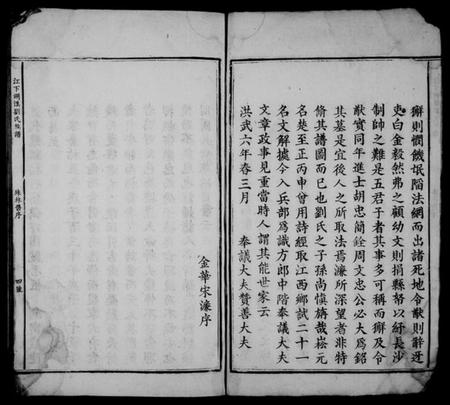 獬則憫饑氓陷法網而出諸死地令猷則辭迓
吏白金毅然弗之顧幼文則捐縣帑以紓長沙
制帥之難是五君子者其事多可稱而獬及令
猷實同年進士胡忠簡銓周文忠公必大爲銘
其墓是宜後人之所取法焉濂所深望者非特
脩其譜圖而已也劉氏之子孫尚慎旃哉崧元
名楚至正丙申曾用詩經取江西鄉試二十一
名文解擢今入兵部爲職方郎中階奉議大夫
文章政事見重當時人謂其能世家云
洪武六年春三月 奉議大夫贊善大夫
金華宋濂序
珠林舊序
四